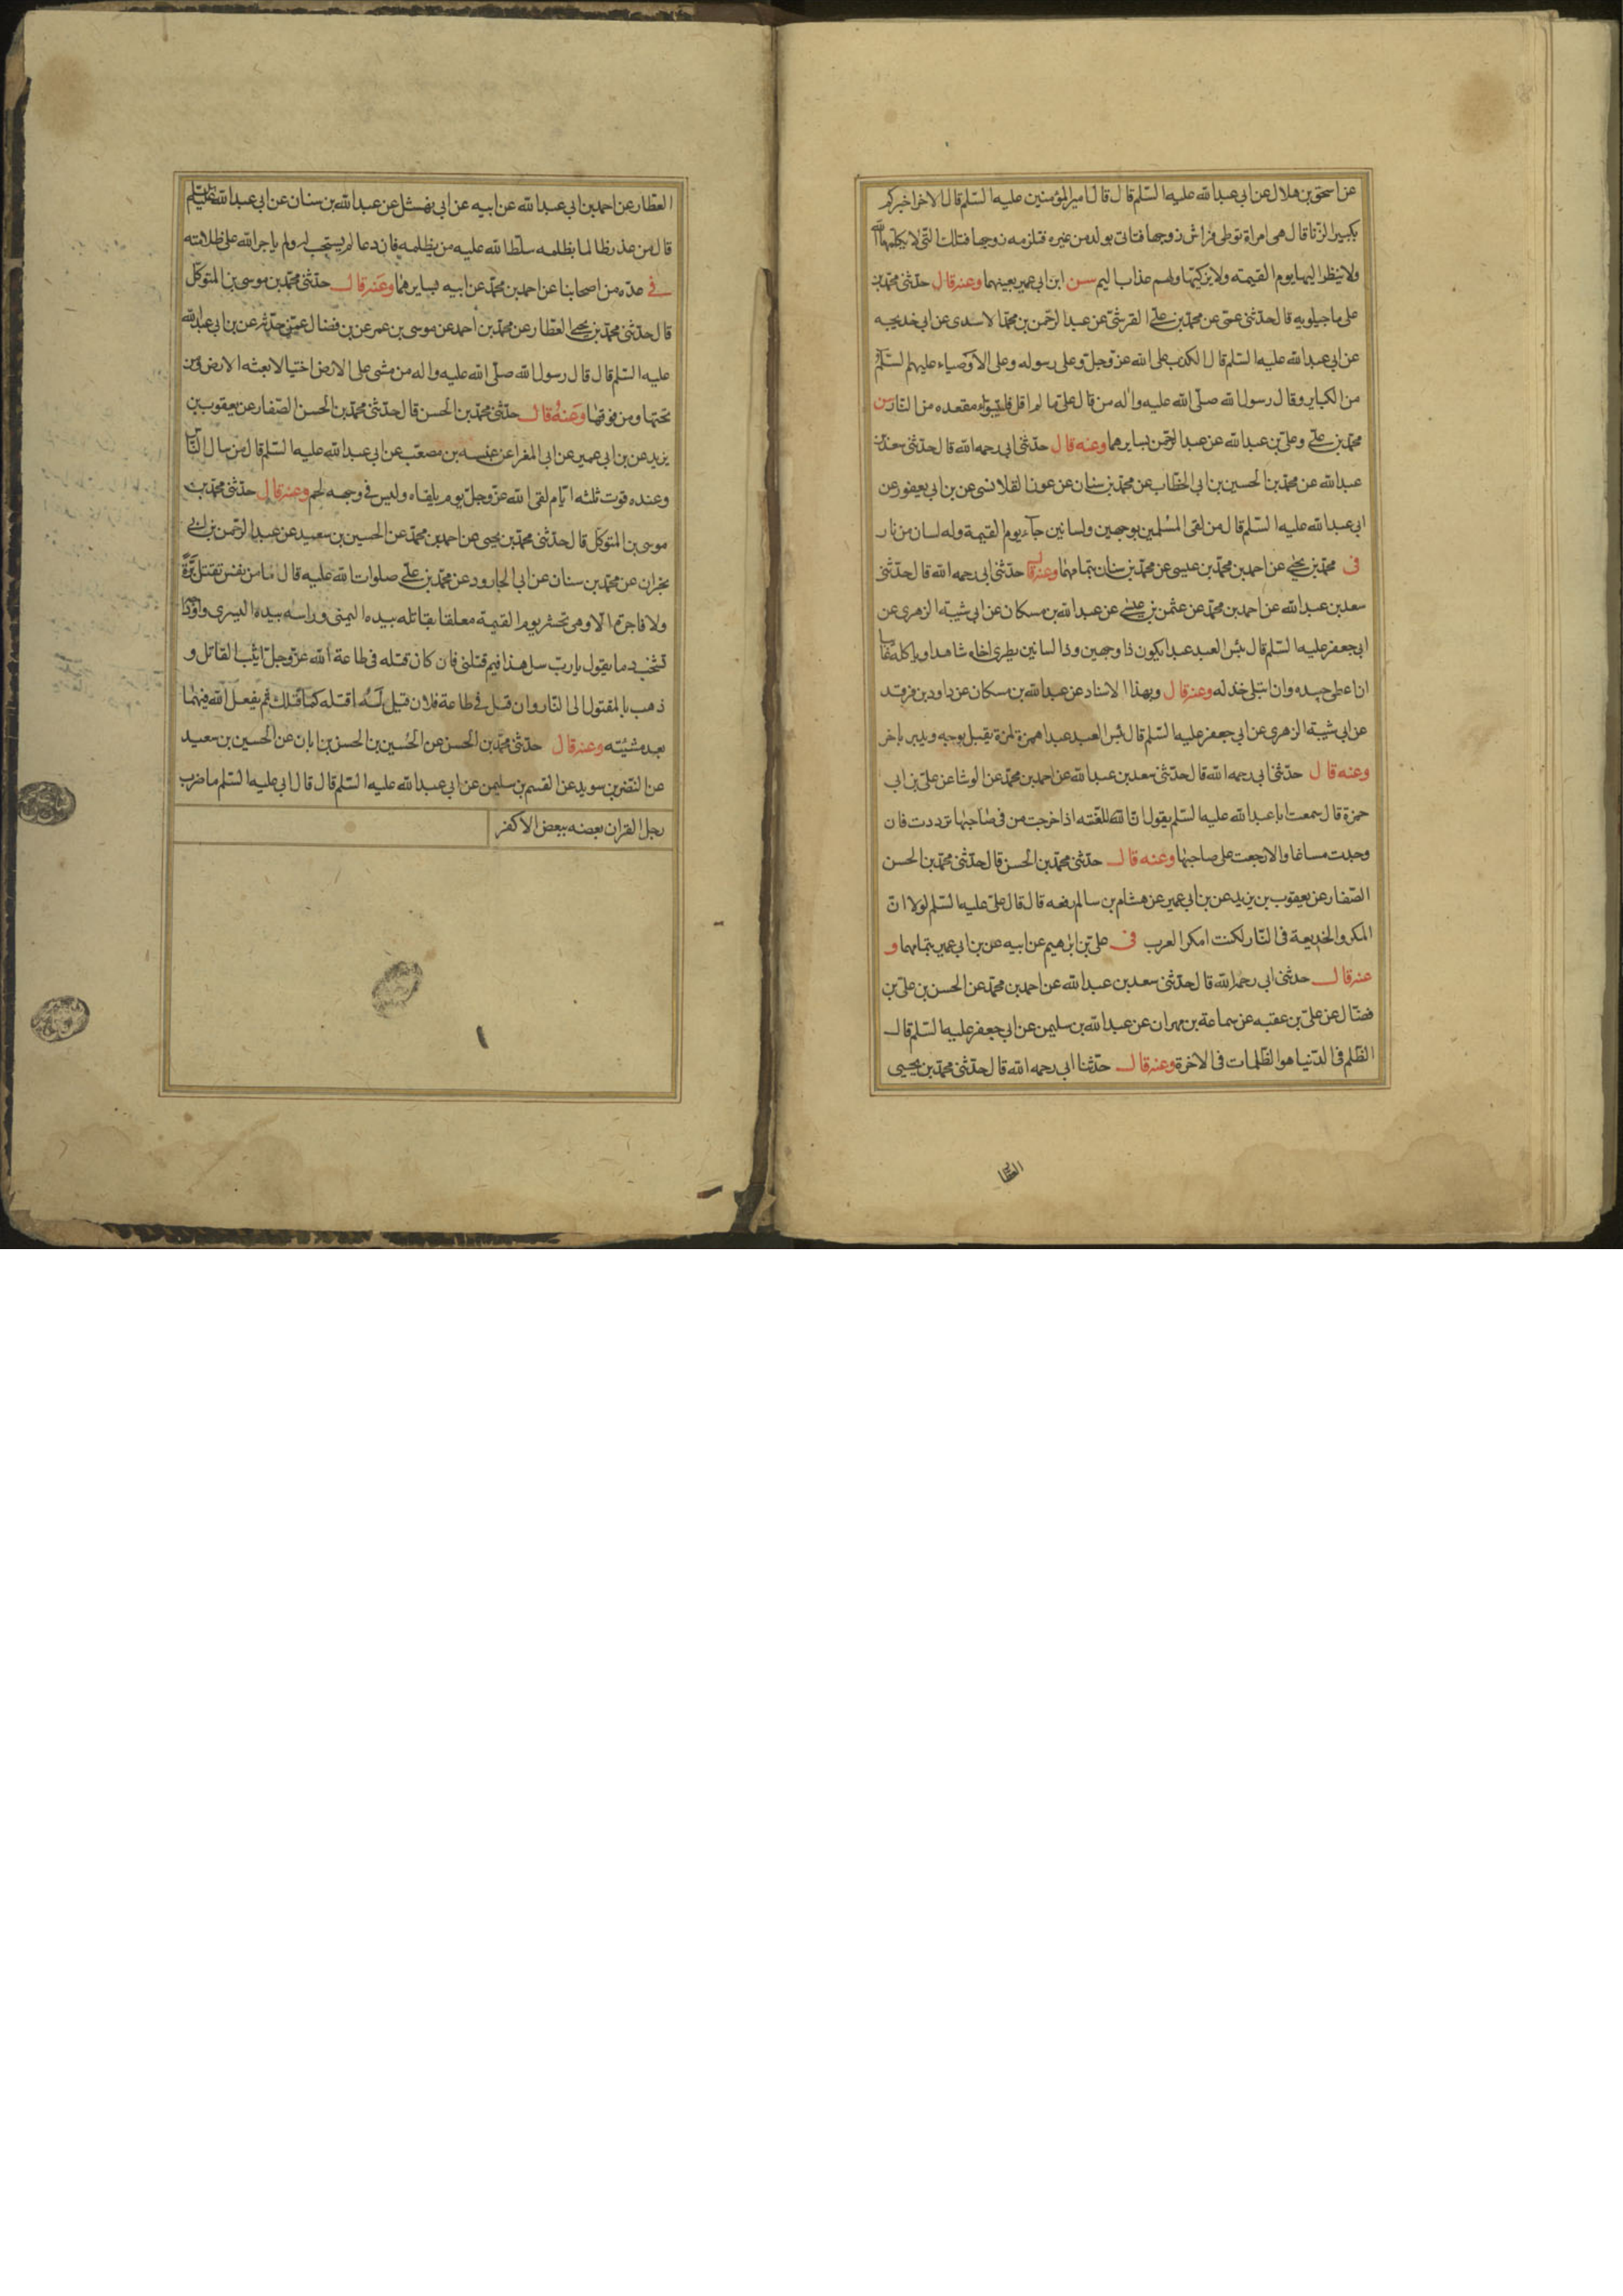 عن اسحق بن هلال عن ابي عبدالله عليه السّلم قال قال اميرالمؤمنين عليه السّلم قال الا اخبركم
بكبير الزّنا قال هي امراة توطي فراش زوجها فتات بولد من غيره فتلزمه زوجها فتلك التي لا يكلمها الله
ولا ينظر اليها يوم القيمه ولا يزكيها ولهم عذاب اليم سن ابن ابي عمير بعينهما وعنه قال حدّثني محمّد بن
علي ماجيلويه قال حدّثني عمّي عن محمّد بن علي القرشي عن عبد الرّحمن بن محمّد الاسدي عن ابي خديجيه
عن ابي عبدالله عليه السّلم قال الكذب على الله عزّوجلّ وعلى رسوله وعلى الاوصياء عليهم السّلم
من الكباير وقال رسول الله صلّى الله عليه واله من قال علىّ ما لم اقل فليتبوّاء مقعده من النّار سن
محمّد بن علي وعلي بن عبدالله عن عبد الرّحمن بسايرهما وعنه قال حدّثني ابي رحمه الله قال حدّثني سعد بن
عبدالله عن محمّد بن الحسين بن ابي الخطّاب عن محمّد بن سنان عن عون القلانسي عن بن ابي يعفور عن
ابي عبدالله عليه السّلم قال من لقى المسلمين بوجهين ولسانين جآء يوم القيمة وله لسان من نار
في محمّد بن يحيى عن احمد بن محمّد بن عيسى عن محمّد بن سنان بتمامهما وعنه قال حدّثني ابي رحمه الله قال حدّثني
سعد بن عبدالله عن احمد بن محمّد عن عثمن بن عيسى عن عبدالله بن مسكان عن ابي شيبة الزهري عن
ابي جعفر عليه السّلم قال بئس العبد عبدا يكون ذا وجهين وذا لسانين يطري اخاه شاهدا وياكله غايبا
ان اعطي حسده وان ابتلي خذله وعنه قال وبهذا الاسناد عن عبدالله بن مسكان عن داود بن فرقد
عن ابي شيبة الزهري عن ابي جعفر عليه السّلم قال بئس العبد عبدا همزة لمزة يقبل بوجه ويدبر باخر
وعنه قال حدّثني ابي رحمه الله قال حدّثني سعد بن عبدالله عن احمد بن محمّد عن الوشا عن علي بن ابي
حمزة قال سمعت ابا عبدالله عليه السّلم يقول انّ اللّعنه اذا خرجت من في صاحبها تردّدت فان
وجدت مساغا والا رجعت على صاحبها وعنه قال حدّثني محمّد بن الحسن قال حدّثني محمّد بن الحسن
الصّفار عن يعقوب بن يزيد عن بن ابي عمير عن هشام بن سالم رفعه قال قال علي عليه السّلم لولا انّ
المكر والخديعة في النّار لكنت امكر العرب في علي بن ابرهيم عن ابيه عن بن ابي عمير بتمامهما و
عنه قال حدثني ابي رحمه الله قال حدّثني سعد بن عبدالله عن احمد بن محمّد عن الحسن بن علي بن
فضّال عن علي بن عقبه عن سماعة بن مهران عن عبدالله بن سليمن عن ابي جعفر عليه السّلم قال
الظلم في الدّنيا هو الظلمات في الاخرة وعنه قال حدّثنا ابي رحمه الله قال حدّثني محمّد بن يحيى
العطّا
العطّار عن احمد بن ابي عبدالله عن ابيه عن ابي نهشل عن عبدالله بن سنان عن ابي عبدالله عليه السّلم
قال من عذر ظالما بظلمه سلّط الله عليه من يظلمه فان دعا لم يستجب له ولم ياجر الله على ظلامته
في عدّه من اصحابنا عن احمد بن محمّد عن ابيه بسايرهما وعنه قال حدّثني محمّد بن موسى بن المتوكّل
قال حدّثني محمّد بن يحيى العطّار عن محمّد بن احمد عن موسى بن عمر عن بن فضال عمّن حدّثه عن بن ابي عبدالله
عليه السّلم قال قال رسول الله صلّى الله عليه واله من مشى على الارض اختيالا لعنته الارض ومن
تحتها ومن فوقها وعنه قال حدّثني محمّد بن الحسن قال حدّثني محمّد بن الحسن الصّفار عن يعقوب بن
يزيد عن بن ابي عمير عن ابي المغرا عن عنبسه بن مصعب عن ابي عبدالله عليه السّلم قال من سال النّاس
وعنده قوت ثلثه ايّام لقى الله عزّوجلّ يوم يلقاه وليس في وجهه لحم وعنه قال حدّثني محمّد بن
موسى بن المتوكّل قال حدّثني محمّد بن يحيى عن احمد بن محمّد عن الحسين بن سعيد عن عبد الرّحمن بن ابي
نجران عن محمّد بن سنان عن ابي الجارود عن محمّد بن علي صلوات الله عليه قال ما من نفس تقتل برّة
ولا فاجرة الّا وهي تحشر يوم القيمة معلقا بقاتله بيده اليمنى وراسه بيده اليسرى واوداجه
تشخب دما يقول يا ربّ سل هذا فيم قتلني فان كان قتله في طاعة الله عزّوجلّ اثيب القاتل و
ذهب بالمقتول الى النّار وان قيل في طاعة فلان قيل له اقتله كما قتلك ثم يفعل الله فيهما
بعد مشيّته وعنه قال حدّثني محمّد بن الحسن عن الحسين بن الحسن بن ابان عن الحسين بن سعيد
عن النّضر بن سويد عن القسم بن سليمن عن ابي عبدالله عليه السّلم قال قال ابي عليه السّلم ما ضرب
رجل القران بعضه ببعض الا كفر